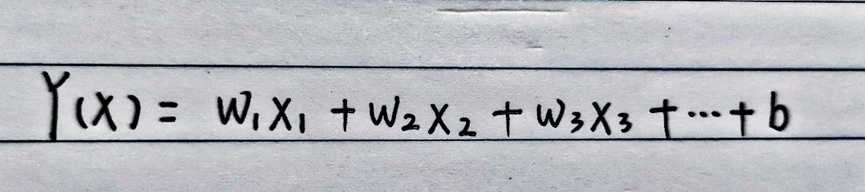 Y(X) = W₁X₁ + W₂X₂ + W₃X₃ + ··· + b